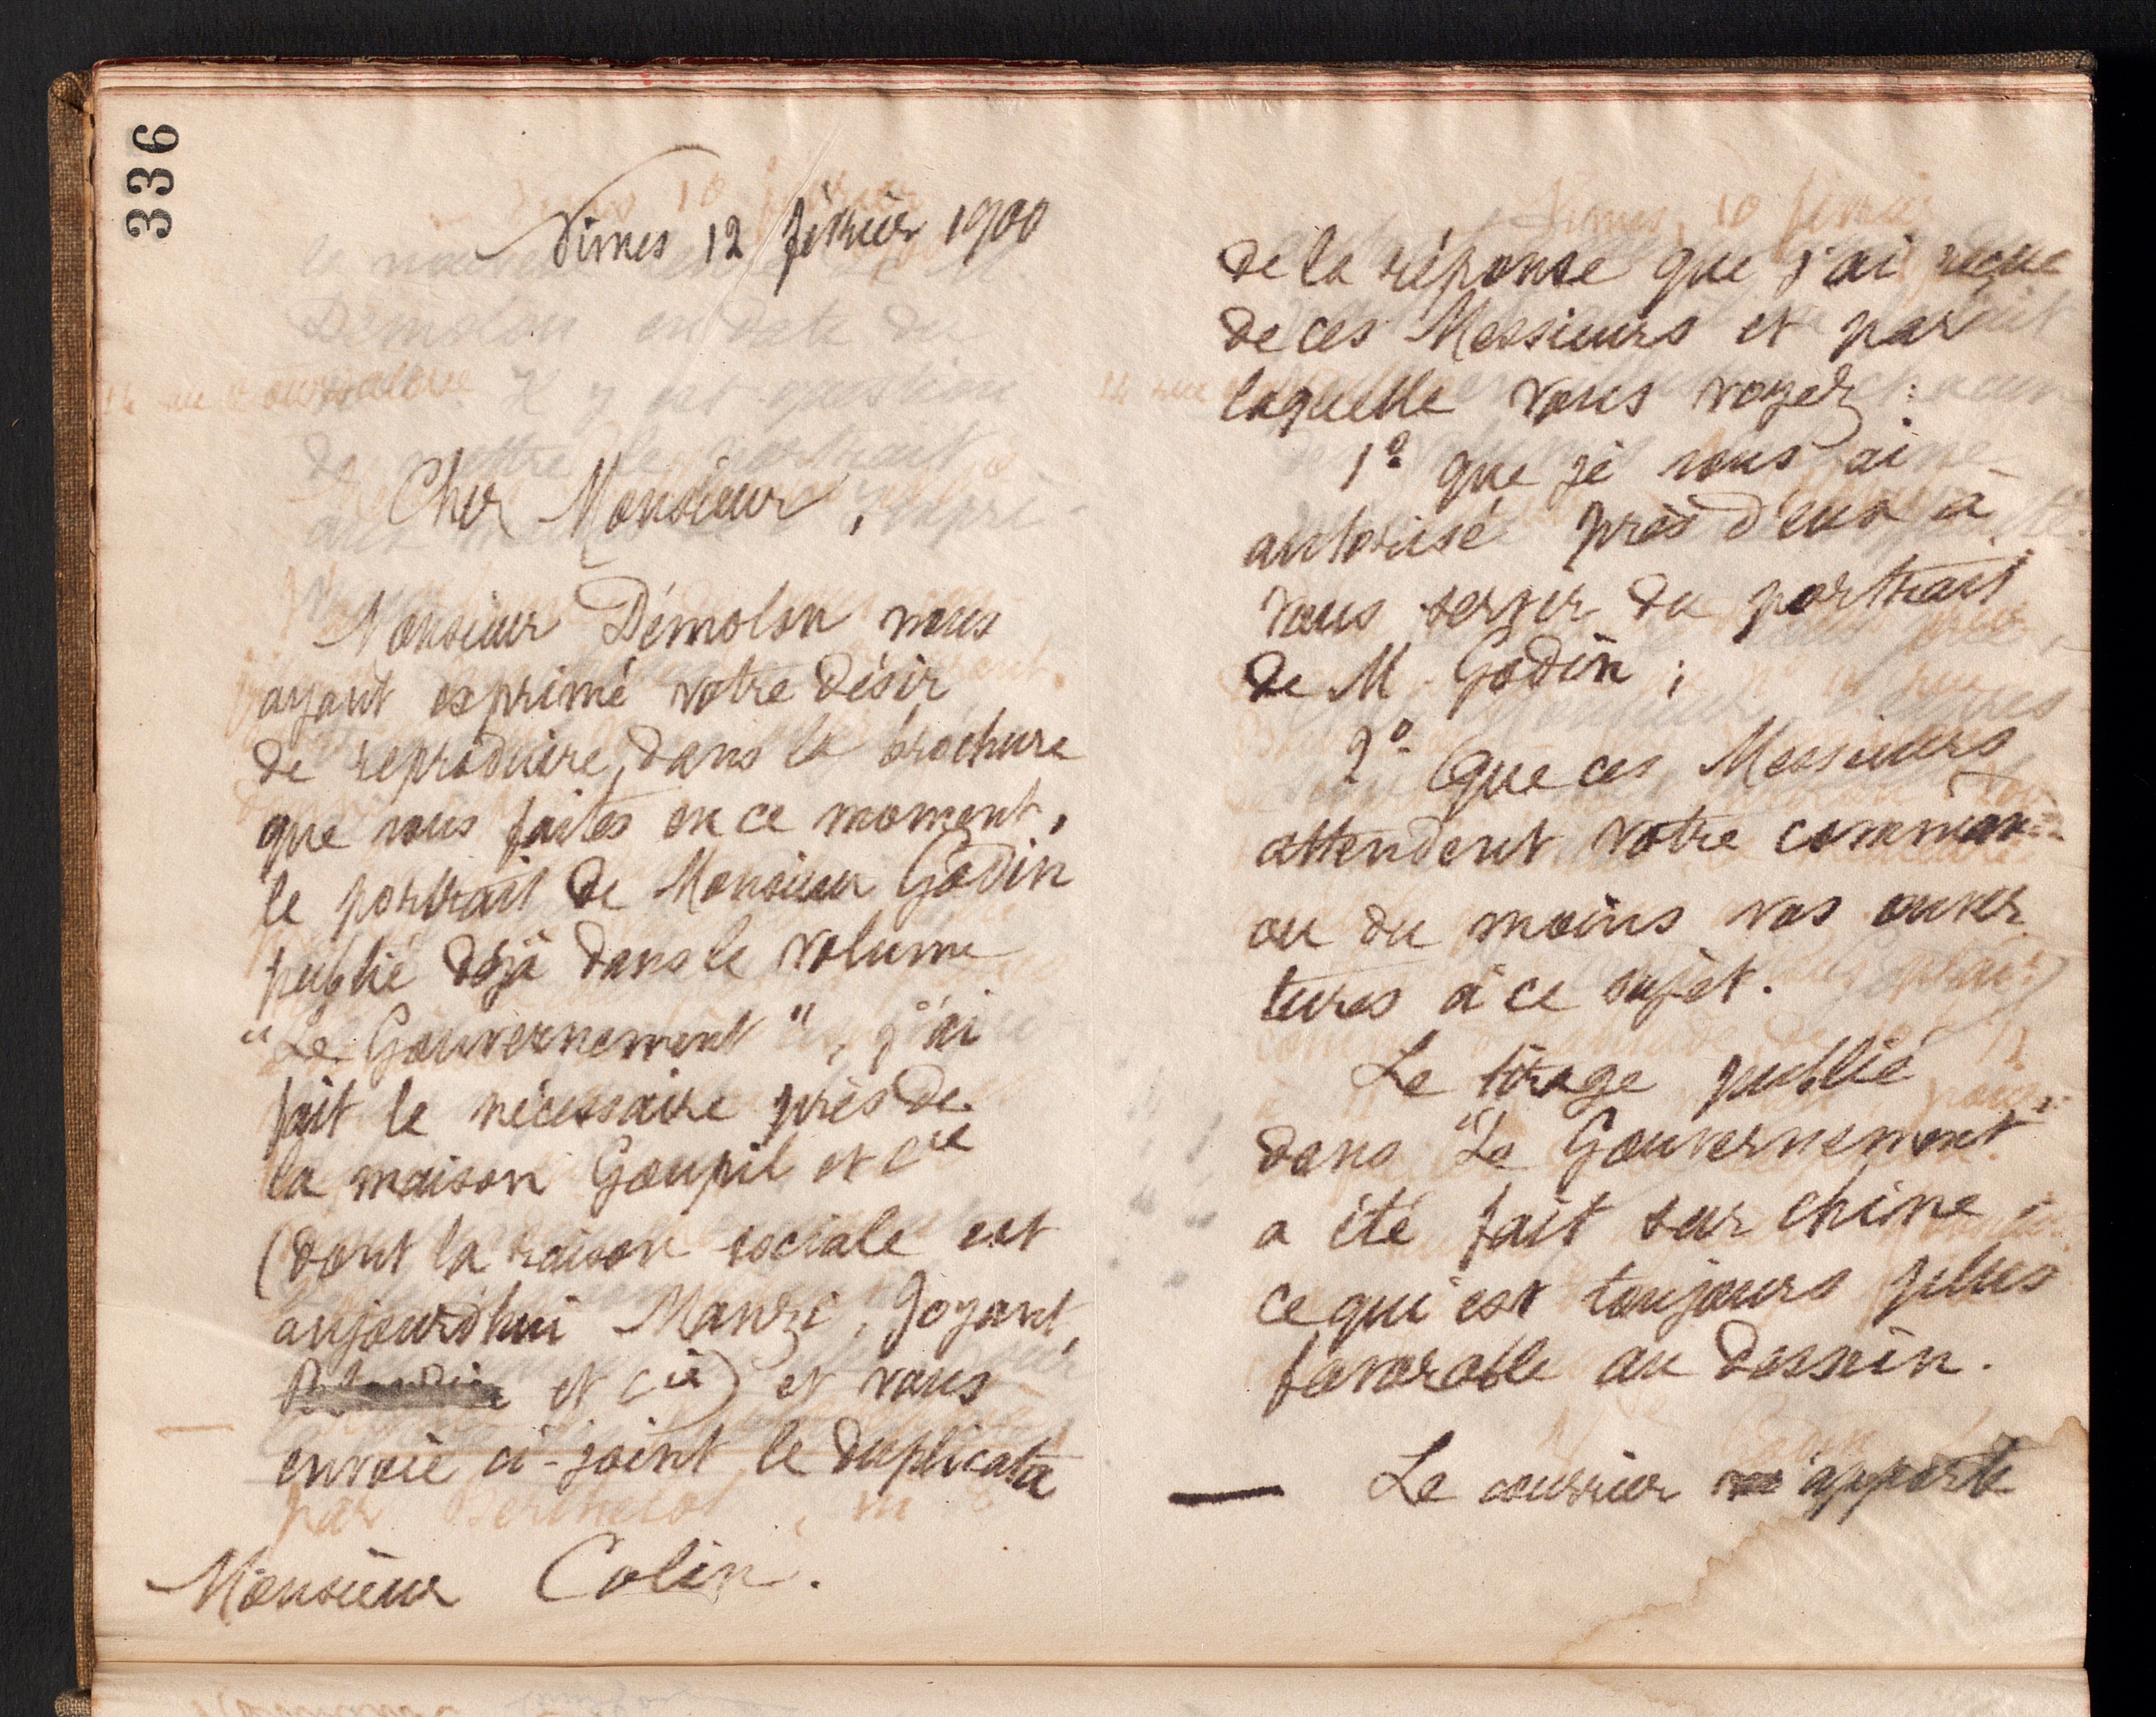 336
Nimes 12 février 1900
Cher Monsieur,
Monsieur Démolon nous
ayant exprimé votre désir
de reproduire, dans la brochure
que vous faites en ce moment,
le portrait de Monsieur Godin
publié déjà dans le volume
"Le Gouvernement", j'ai
fait le nécessaire près de
la maison Goupil et Cie
(dont la raison sociale est
aujourd'hui Manzi, Joyant,
et Cie) et vous
envoie ci-joint le duplicata
Monsieur Colin.
de la réponse que j'ai reçue
de ces Messieurs et par
laquelle vous voyez :
1º que je vous ai
autorisé près d'eux à
vous servir du portrait
de M. Godin ;
2º Que ces Messieurs
attendent votre comman-
ou du moins vos ouver
tures à ce sujet.
Le tirage publié
dans "Le Gouvernement"
a été fait sur chine,
ce qui est toujours plus
favorable au dessin.
Le courrier m'apporte